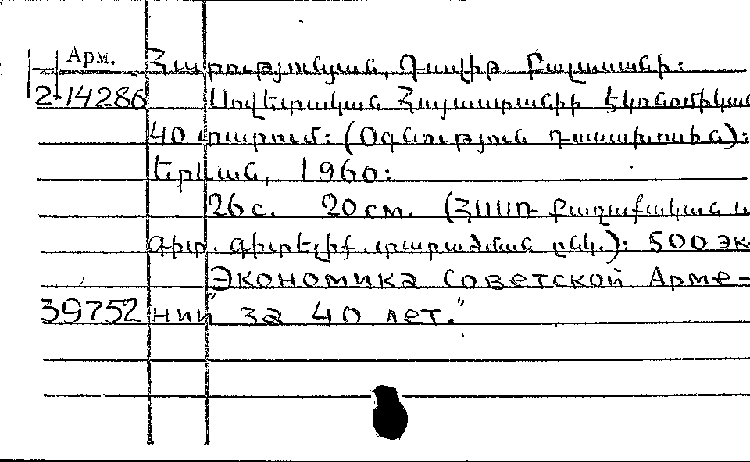 Арм. Հարությունյան, Դավիթ Բալասանի:
2-14286 Սովետական Հայաստանի էկոնոմիկան
40 տարում: (Օգնություն դասախոսին):
Երևան, 1960:
26с. 20см. (ՀՍՍՌ քաղաքական և
գիտ. գիտելիք. տարածման ընկ.): 500 эк
Экономика Советской Арме-
39752 нии за 40 лет."